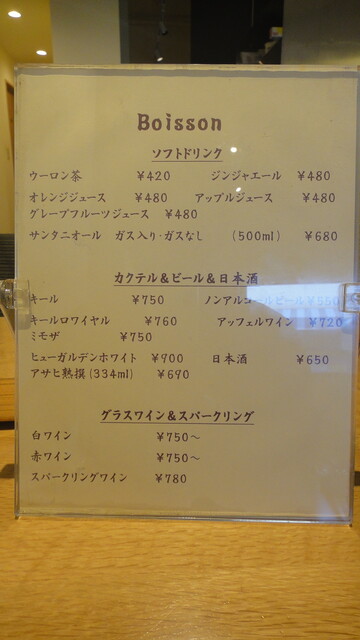 Boisson
ソフトドリンク
ウーロン茶 ¥420 ジンジャエール ¥480
オレンジジュース ¥480 アップルジュース ¥480
グレープフルーツジュース ¥480
サンタニオール ガス入り・ガスなし (500ml) ¥680
カクテル&ビール&日本酒
キール ¥750 ノンアルコールビール ¥550
キールロワイヤル ¥760 アッフェルワイン ¥720
ミモザ ¥750
ヒューガルデンホワイト ¥900 日本酒 ¥650
アサヒ熟撰(334ml) ¥690
グラスワイン&スパークリング
白ワイン ¥750～
赤ワイン ¥750～
スパークリングワイン ¥780